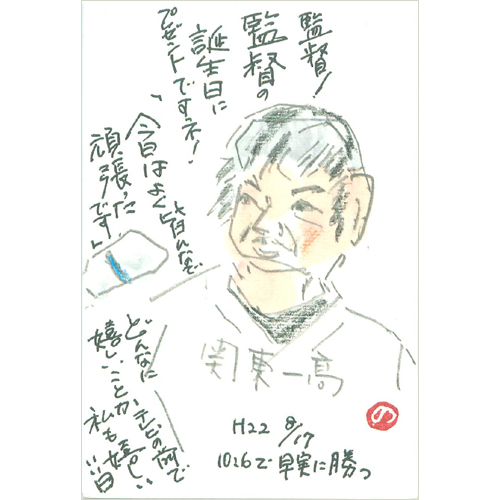 監督!
監督の
誕生日に
プレゼントですネ!
「今日はよく皆んなで
頑張ったです」
関東一高
どんなに
嬉しいことか
テレビの前で
私も嬉しい日
の
H22 8/17
10対6で早実に勝つ